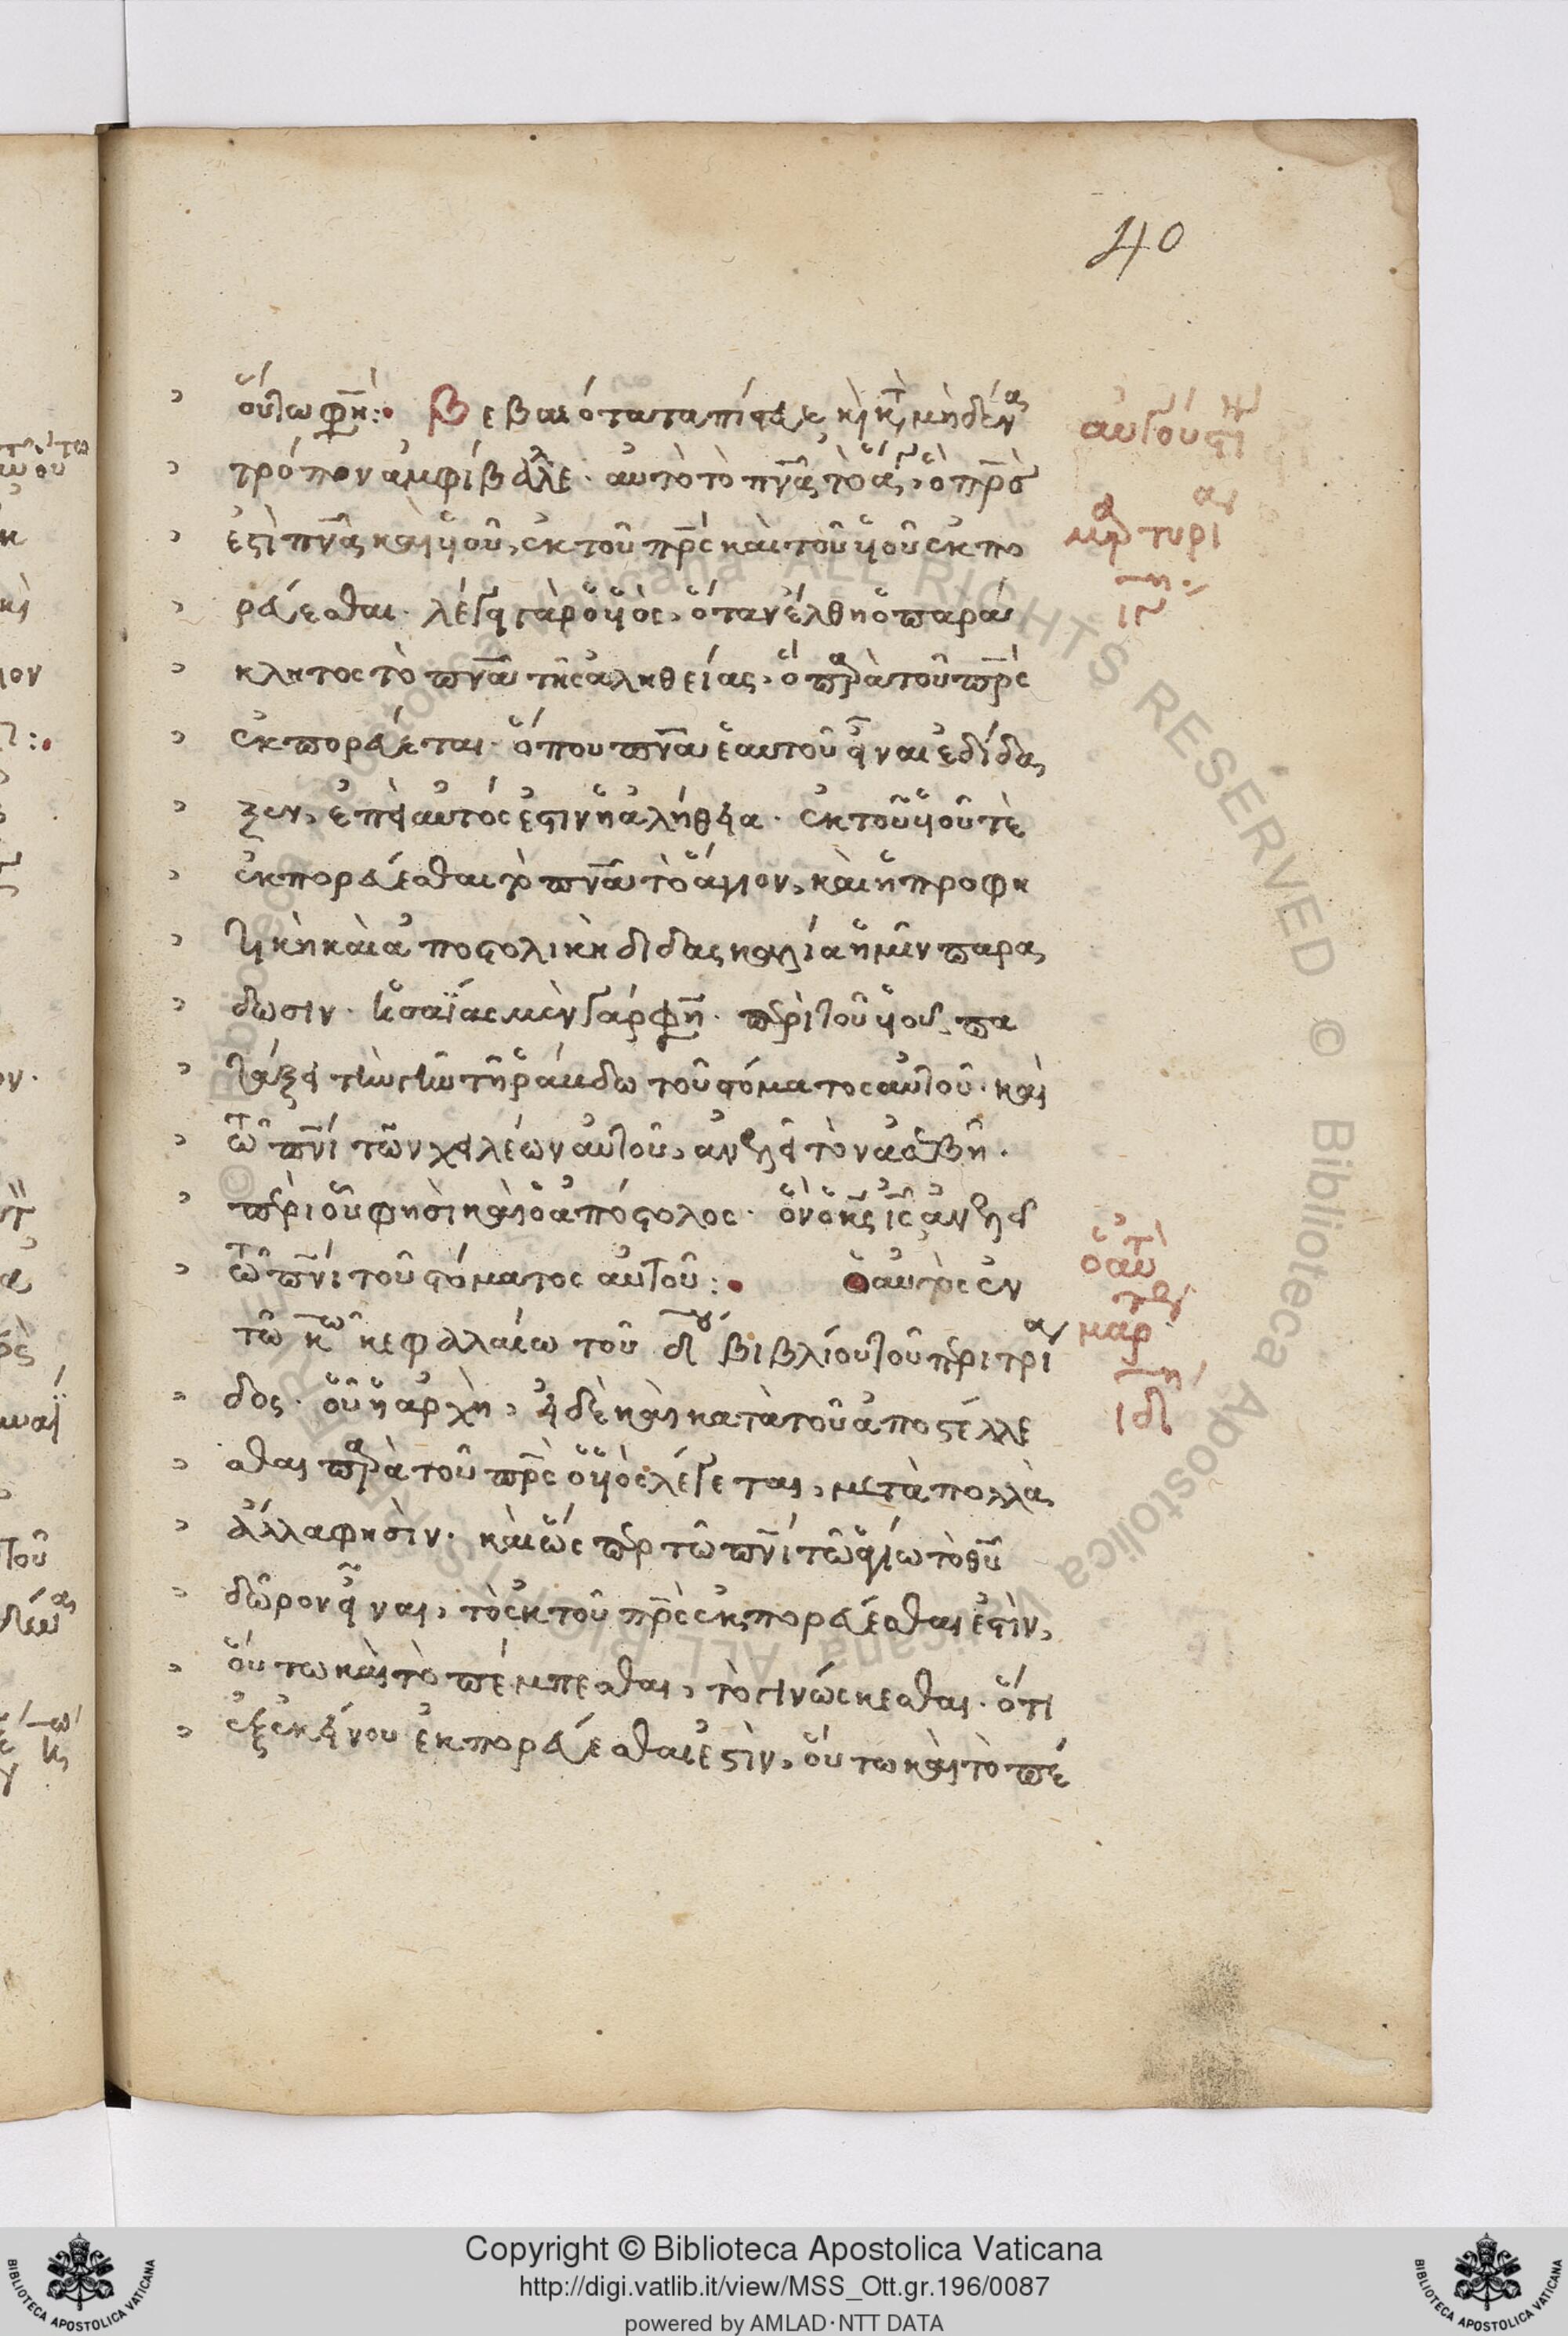 40
οὕτω φη̄ :· Βεβαιότατα πίστευε κὶ κτ μηδένα
τρόπον ἀμφίβαλλε · αὐτὸ τὸ πνᾶ τὸ ἅγ, ὃ πρ̄ς
ἐστὶ πνᾶ καὶ υἱοῦ, ἐκ τοῦ πρ̄ς καὶ τοῦ υἱοῦ ἐκπο
ρεύεσθαι · λέγει γὰρ ὁ υἱὸς, ὅταν ἔλθη ὁ παρά
κλητος τὸ πνᾶ τῆς ἀληθείας, ὃ παρὰ τοῦ πρ̄ς
ἐκπορεύεται · ὅπου πνᾶ ἑαυτοῦ εἶναι ἐδίδα
ξεν, ἐπεὶ αὐτός ἐστιν ἡ ἀλήθεια · ἐκ τοῦ υἱοῦ τὲ
ἐκπορεύεσθαι τὸ πνᾶ τὸ ἅγιον, καὶ ἡ προφη
τικὴ καὶ ἀποστολικὴ διδασκαλία ἡμῖν παρα
δωσιν · Ἡσαΐας μὲν γάρ φη̄ · περὶ τοῦ υἱοῦ πα
τάξει τὴν γῆν τῆ ῥάβδω τοῦ στόματος αὐτοῦ · καὶ
τῶ πνι τῶν χειλέων αὐτοῦ, ἀνελεῖ τὸν ἀσεβῆ ·
περὶ οὗ φησὶ καὶ ὁ ἀπόστολος · ὃν ὁ κς ις ἀνελεῖ
τῶ πνι τοῦ στόματος αὐτοῦ :· ὁ αὐτὸς ἐν
τῶ κῶ κεφαλαίω τοῦ δου βιβλίου τοῦ περὶ τριά
δος · οὗ ἡ ἀρχὴ, εἰ δὲ καὶ κατὰ τοῦ ἀποστέλλε
σθαι παρὰ τοῦ πρ̄ς ὁ υἱὸς λέγεται, μετὰ πολλὰ
ἄλλα φησὶν · καὶ ὥς περ τῶ πνι τῶ ἁγίω τὸ θῦ
δῶρον εἶναι, τὸ ἐκ τοῦ πρ̄ς ἐκπορεύεσθαι ἐστὶν,
οὕτω καὶ τὸ πέμπεσθαι, τὸ γινώσκεσθαι · ὅτι
ἐξ ἐκείνου ἐκπορεύεσθαι ἐστὶν, οὕτω καὶ τὸ πέ
αὐγουστί
μαρτυρία
ιγ
ὁ αὐτ
μαρ
ιδ
Copyright © Biblioteca Apostolica Vaticana
http://digi.vatlib.it/view/MSS_Ott.gr.196/0087
powered by AMLAD·NTT DATA